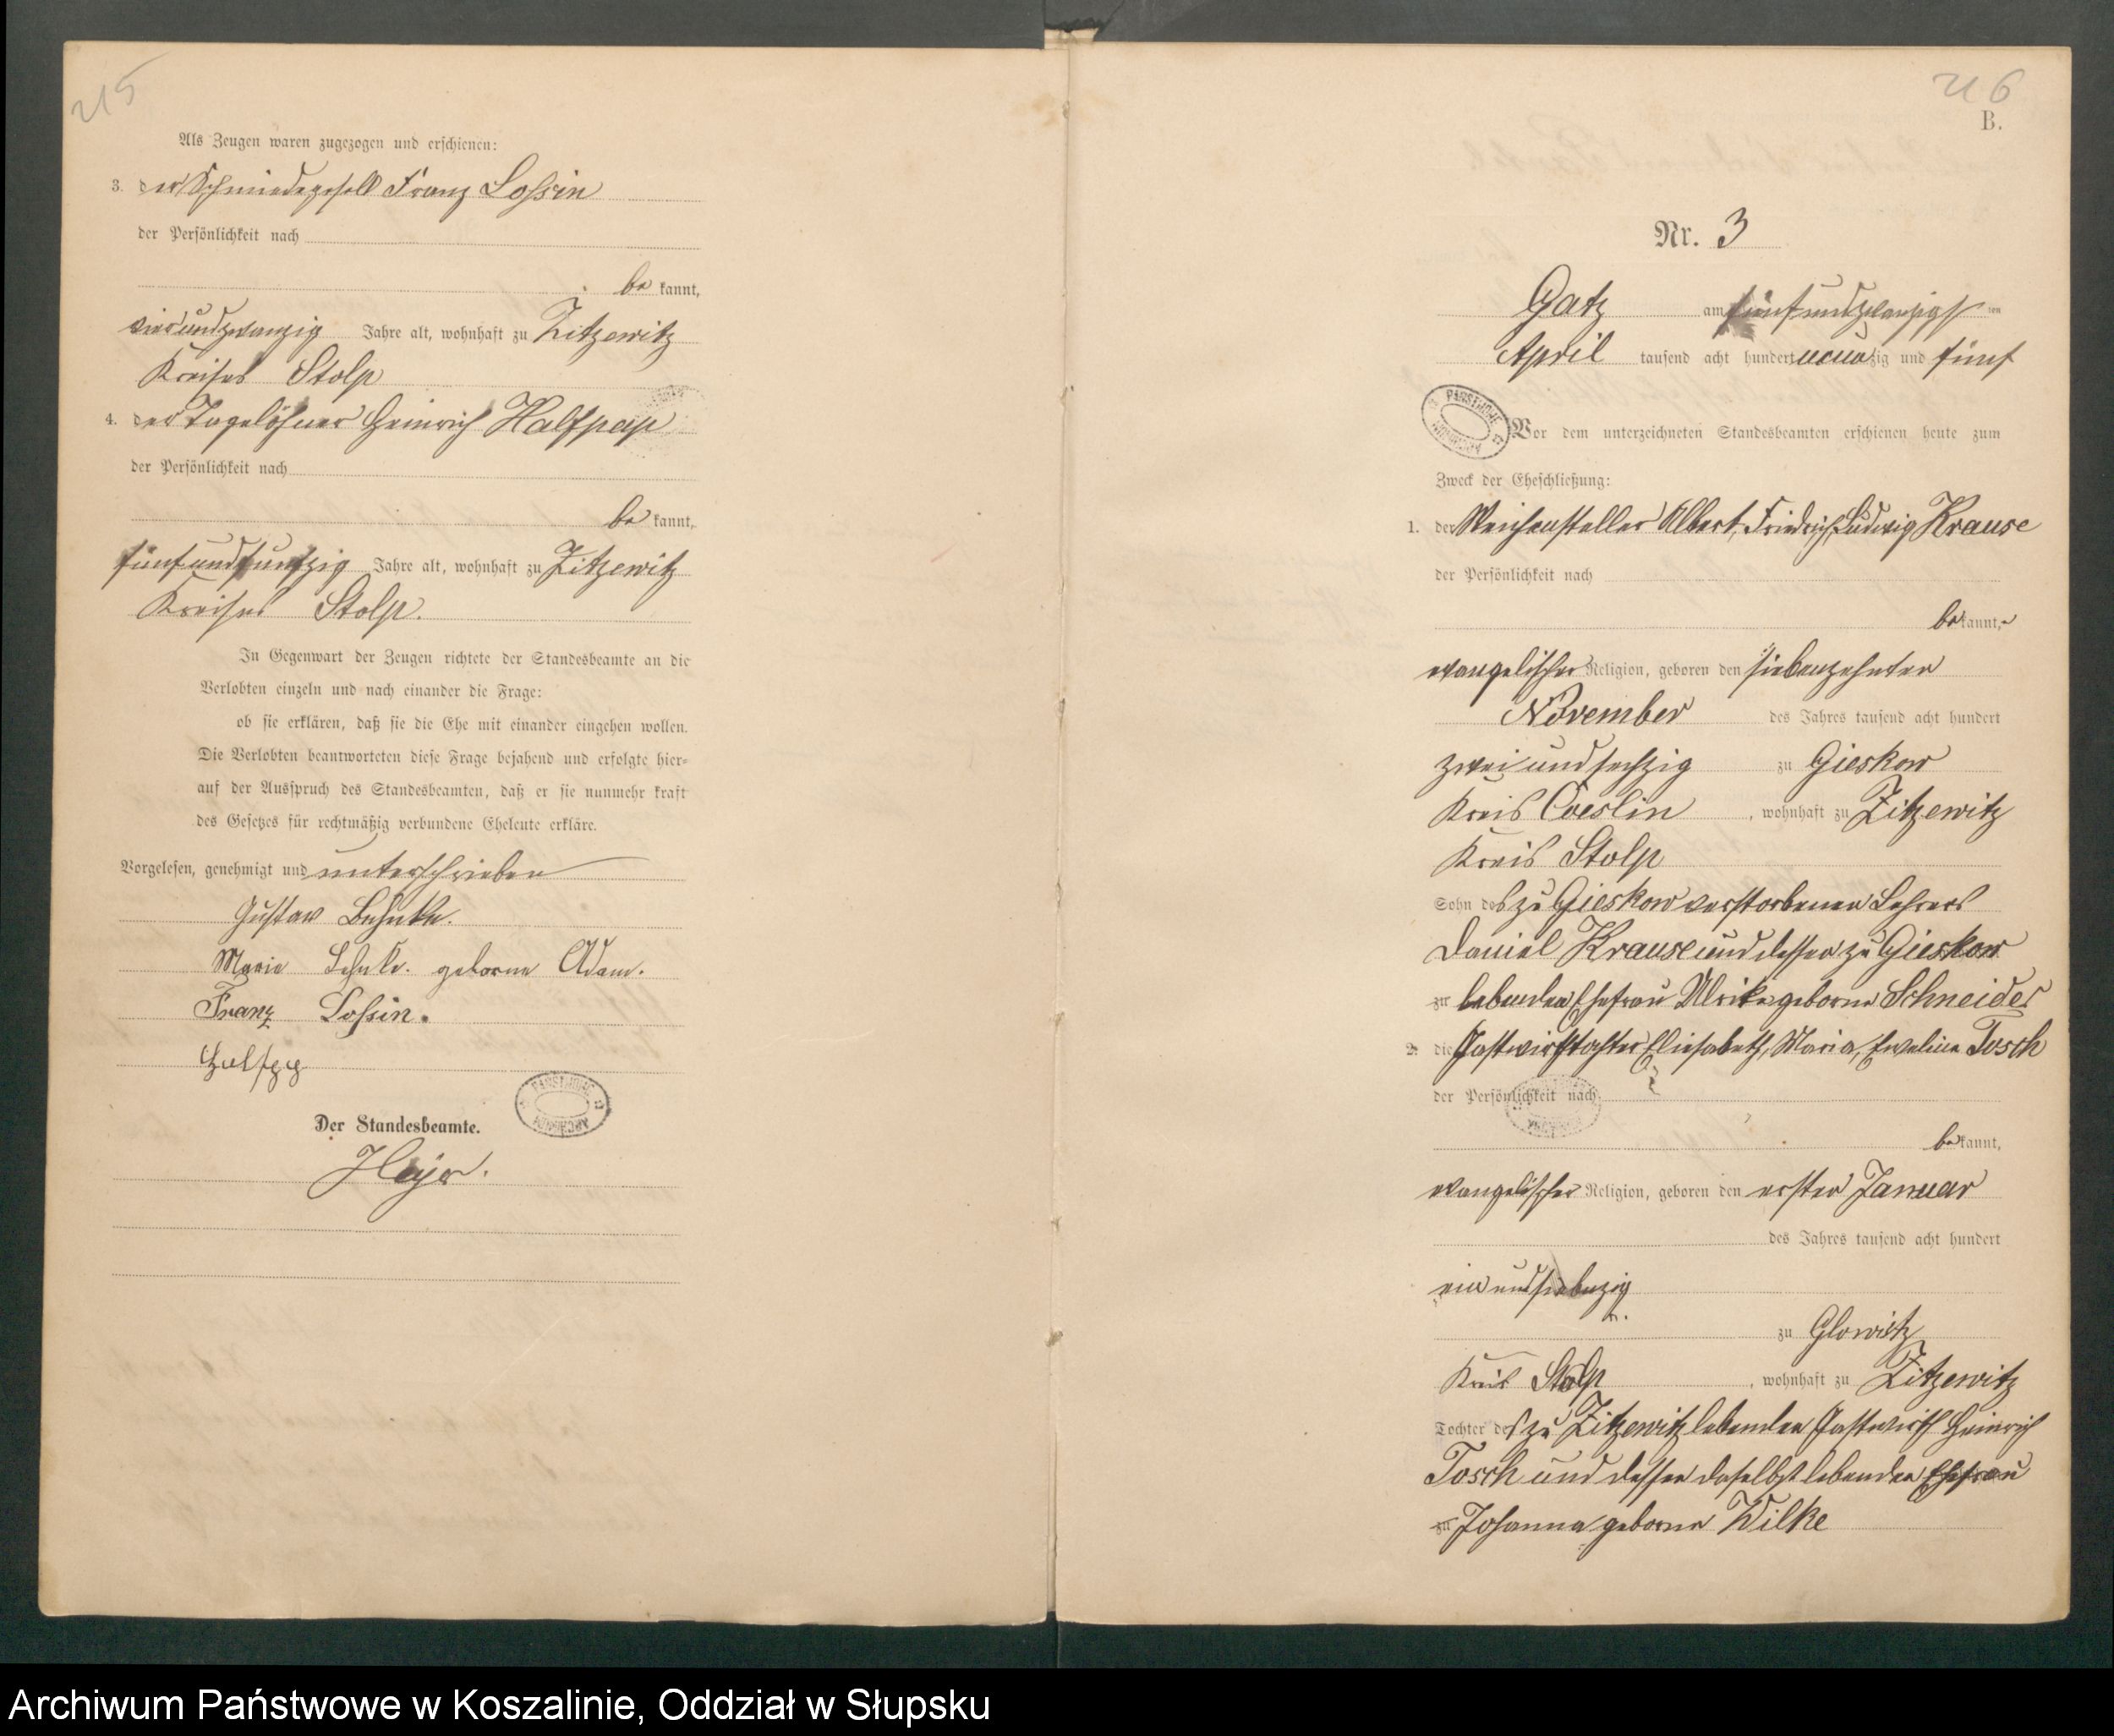 215
Als Zeugen waren zugezogen und erschienen:
3. der Schmiedegesell Franz Lossin
der Persönlichkeit nach
be kannt,
vierundzwanzig Jahre alt, wohnhaft zu Zitzewitz
Kreises Stolp
4. der Tagelöhner Heinrich Halfpap
der Persönlichkeit nach
be kannt,
fünfundfunfzig Jahre alt, wohnhaft zu Zitzewitz
Kreises Stolp.
In Gegenwart der Zeugen richtete der Standesbeamte an die
Verlobten einzeln und nach einander die Frage:
ob sie erklären, daß sie die Ehe mit einander eingehen wollen.
Die Verlobten beantworteten diese Frage bejahend und erfolgte hier-
auf der Ausspruch des Standesbeamten, daß er sie nunmehr kraft
des Gesetzes für rechtmäßig verbundene Eheleute erkläre.
Vorgelesen, genehmigt und unterschrieben
Gustav Behnke.
Marie Behnke. geborne Adam.
Franz Lossin.
Der Standesbeamte.
216
B.
Nr. 3
Gatz am fünfundzwanzigsten
April tausend acht hundert neunzig und fünf
Vor dem unterzeichneten Standesbeamten erschienen heute zum
Zweck der Eheschließung:
1. der Weichensteller Albert, Friedrich, Ludwig Krause
der Persönlichkeit nach
be kannt,
evangelischer Religion, geboren den siebenzehnten
November des Jahres tausend acht hundert
zwei und sechzig zu Gieskow
Kreis Coeslin, wohnhaft zu Zitzewitz
Kreis Stolp
Sohn des zu Gieskow verstorbenen Lehrers
Daniel Krause und dessen zu Gieskow
zu lebenden Ehefrau Ulrike geborne Schneider
2. die Gastwirthstochter Eliesabeth, Maria, Eveline Tosch
der Persönlichkeit nach
be kannt,
evangelischer Religion, geboren den ersten Januar
des Jahres tausend acht hundert
ein und siebenzig
zu Glowitz
Kreis Stolp, wohnhaft zu Zitzewitz
Tochter des zu Zitzewitz lebenden Gastwirth Heinrich
Tosch und dessen daselbst lebenden Ehefrau
zu Johanna geborne Wilke
Archiwum Państwowe w Koszalinie, Oddział w Słupsku